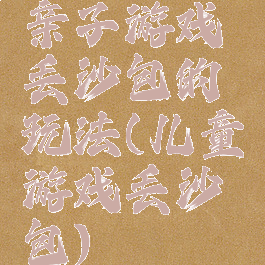 亲子游戏
丢沙包的
玩法(儿童
游戏丢沙
包)